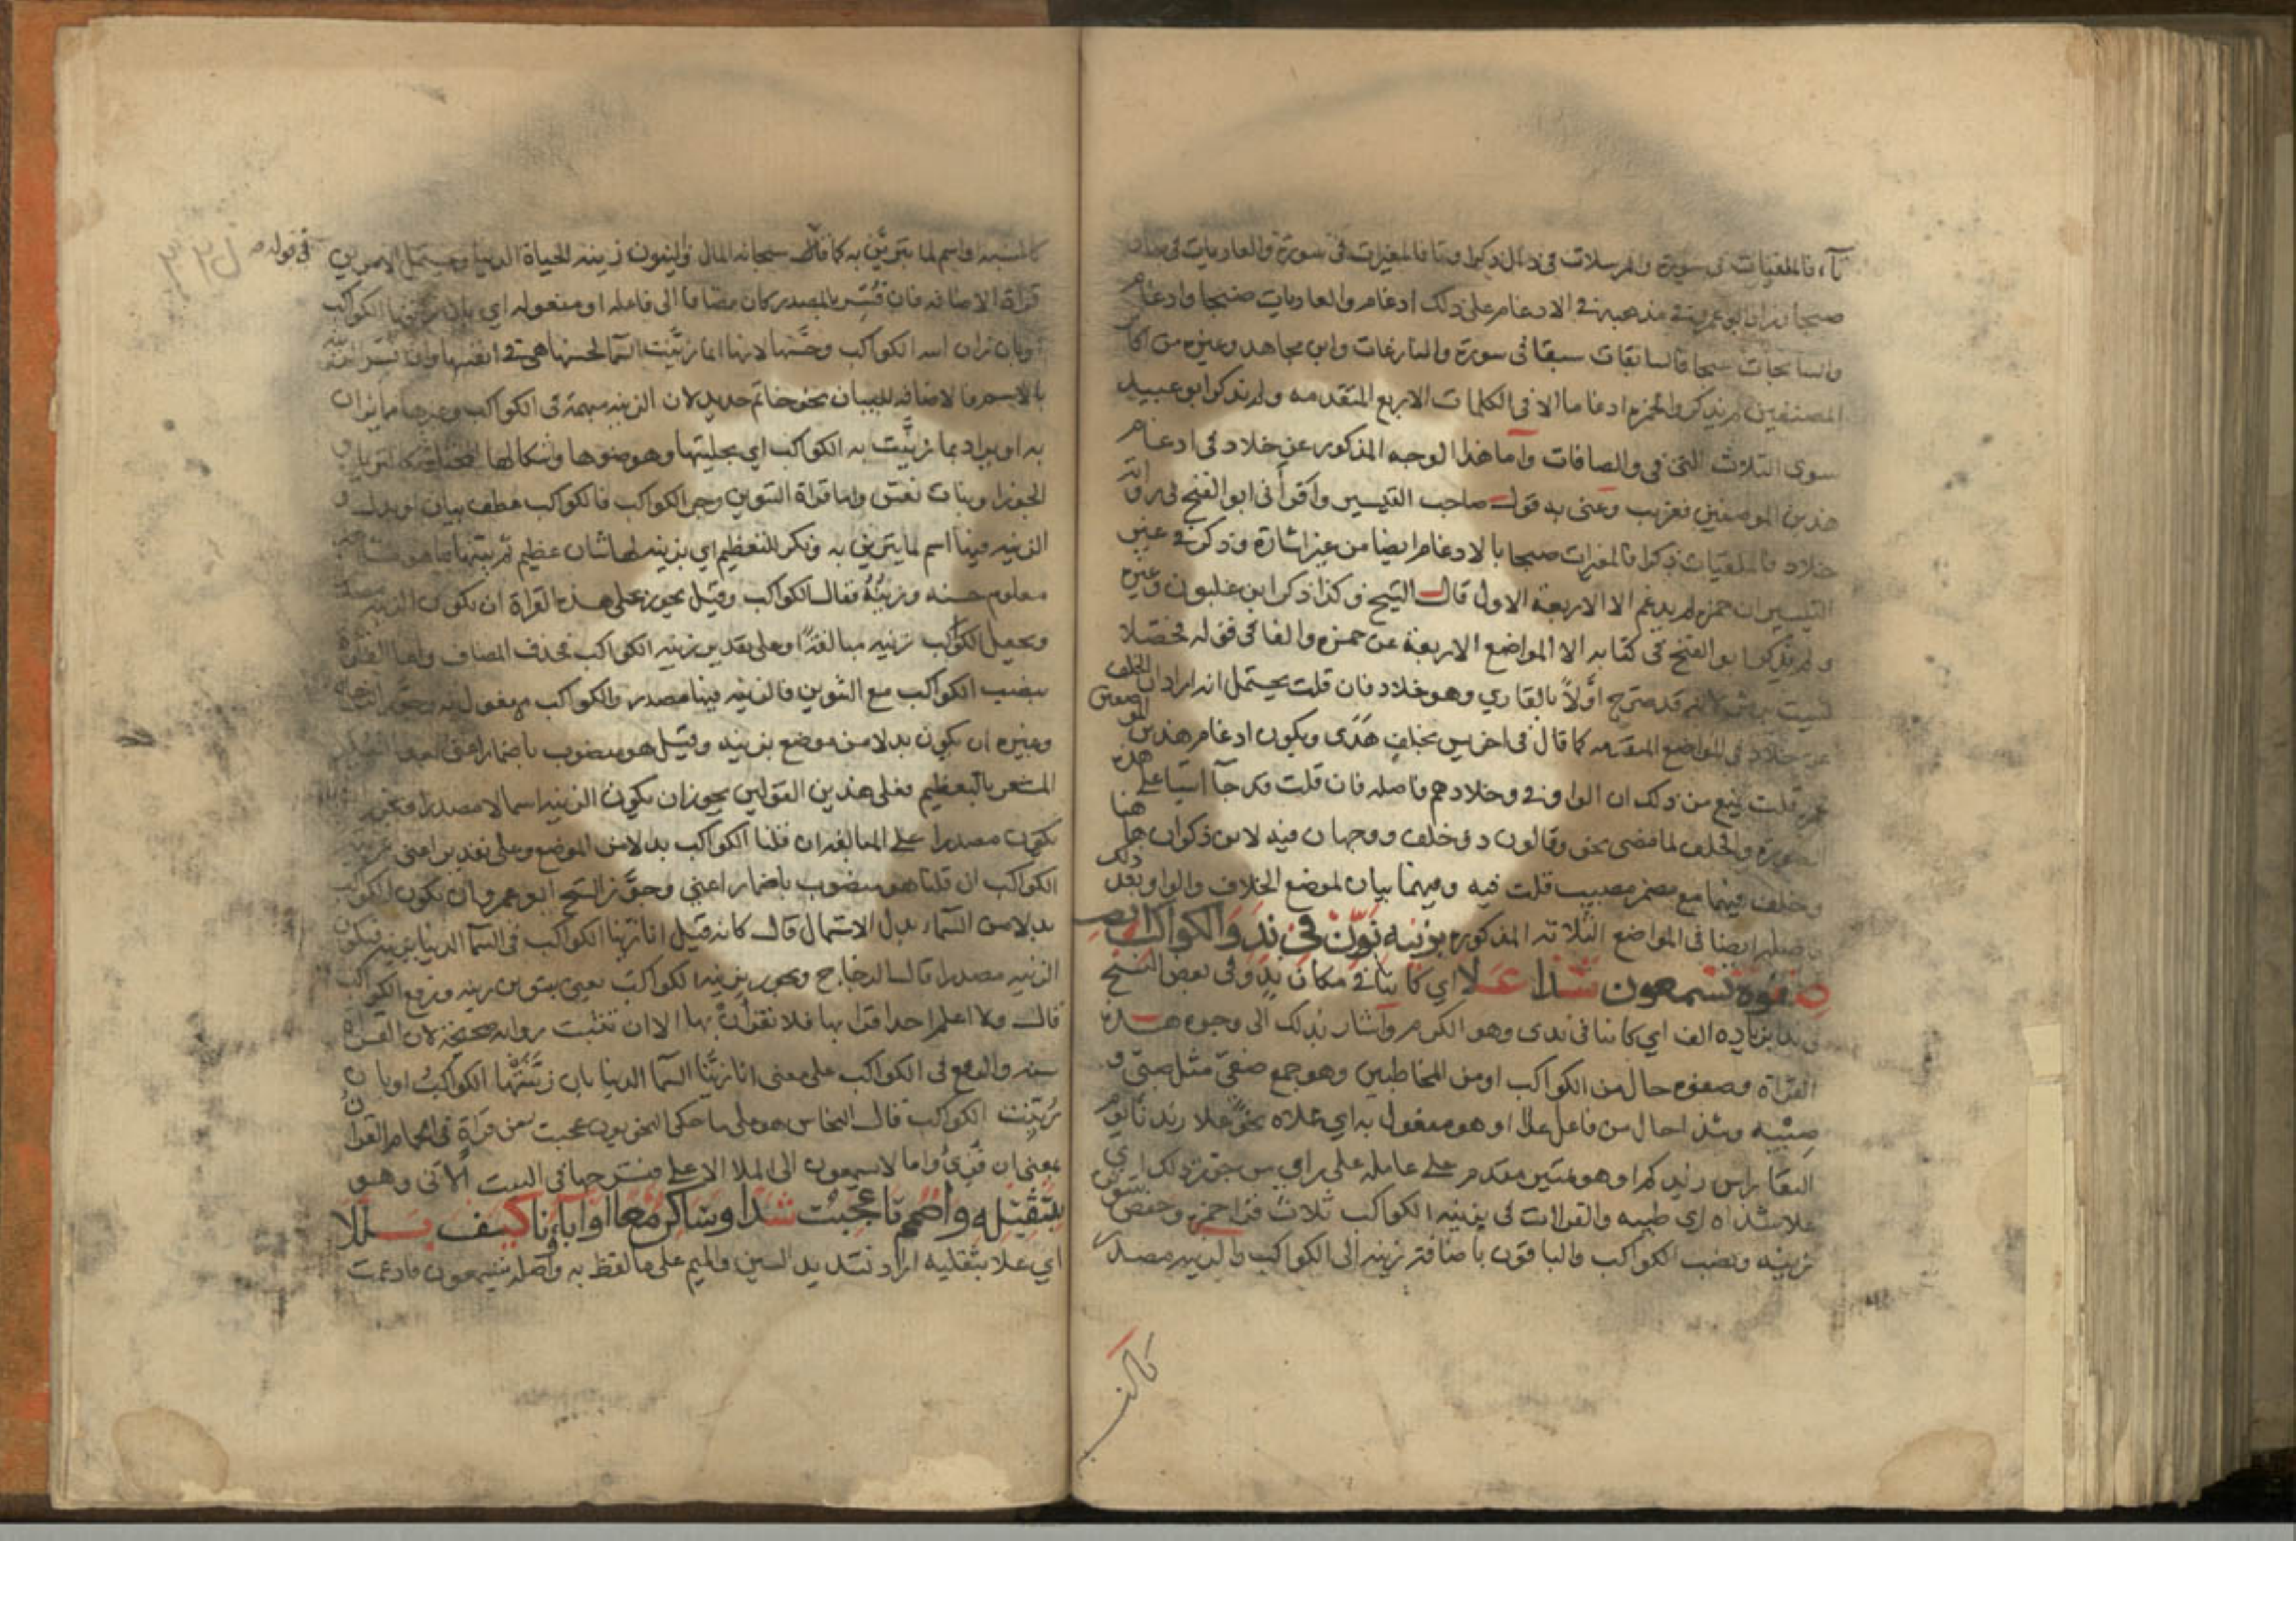 فالملقيات في سورة والمرسلات في ذال ذكرا وتا فالمغيرات في سورة والعاديات في صاد
صبحا وزاد ابو عمرو في مذهبه في الادغام على ذلك ادغام والعاديات ضبحا وادغام
والسابحات سبحا فالسابقات سبقا في سورة والنازعات وابن مجاهد وغيره من اكابر
المصنفين لم يذكروا لحمزه ادغاما الا في الكلمات الاربع المتقدمه ولم يذكر ابو عبيد
سوى الثلاث التي في والصافات واما هذا الوجه المذكور عن خلاد في ادغام
هذين الموضعين فغريب وعنى به قول صاحب التيسير واقرأني ابو الفتح في رواية
خلاد فالملقيات ذكرا فالمغيرات صبحا بالادغام ايضا من غير اشارة وذكر في غير
التيسير ان حمزه لم يدغم الا الاربعة الاول قال الشيخ وكذا ذكر ابن غلبون وغيره
ولم يذكر ابو الفتح في كتابه الا المواضع الاربعة عن حمزه والفا في قوله فحصلا
ليست برمز لانه قد صرح اولا بالقاري وهو خلاد فان قلت يحتمل انه اراد الخلف
عن خلاد في المواضع المتقدمه كما قال في اخر يس بخلف هدى ويكون ادغام هذين الموضعين
عن قلت يمنع من ذلك ان الواو في وخلادهم فاصله فان قلت قد جآ اشيا على هذه
الصورة والخلف لما مضى نحو وقالون ذو خلف ووجهان فيه لابن ذكوان هاهنا
وخلف فيهما مع مضمر مصيب قلت فيه وفيهما بيان لموضع الخلاف والواو بعد ذلك
فاصله ايضا في المواضع الثلاثه المذكوره بزينه نوّن في ند والكواكب انصبوا
صفوة تسمعون شذا علا اي كاينا في مكان ند وفي بعض النسخ
في ندا بزيادة الف اي كاينا في ندى وهو الكرم واشار بذلك الى وجوه هذه
القراة وصفوه حال من الكواكب او من المخاطبين وهو جمع صفيّ مثل صبيّ و
صبيه وشذا حال من فاعل علا او هو مفعول به اي علاه نحو علا زيد ثابوم
النقا راس زيد كم او هو تمييز مقدم على عامله على راي من جوز ذلك اي
علا شذاه اي طيبه والقراات في بزينه الكواكب ثلاث قرا حمزه وحفص بتنوين
زينه وخفض الكواكب والباقون باضافة زينه الى الكواكب والزينه مصدر
كالنسبه
كالنسبه واسم لما يتزين به كما قال سبحانه المال والبنون زينه الحياة الدنيا ويحتمل الامرين في قوله
قراة الاضافه فان فسر بالمصدر كان مضافا الى فاعله او مفعوله اي بان زينتها الكواكب
وبان زان الله الكواكب وحسنها لانها انما زينت السما لحسنها هي في انفسها وان فسرت
بالاسم فالاضافه للبيان نحو خاتم حديد لان الزينه مبهمة في الكواكب وغيرها مما يزان
به او يراد بما زينت به الكواكب اي بحليتها وهو ضوها وشكالها المختلفه كالثريا و
الجوزا وبنات نعش واما قراة التنوين وجر الكواكب فالكواكب عطف بيان او بدل و
الزينه فيها اسم لما يتزين به ونكر للتعظيم اي بزينه لها شان عظيم ثم بينها بما هو مشاهد
معلوم حسنه وزينته فقال الكواكب وقيل يجوز على هذه القراة ان تكون الزينه مصدر
ويجعل الكواكب زينه مبالغة او على تقدير زينه الكواكب فحذف المضاف واما القراة
بنصب الكواكب مع التنوين فالزينه فيها مصدر والكواكب مفعول به وجوز الزجاج
وغيره ان يكون بدلا من موضع بزينه وقيل هو منصوب باضمار اعني
المشعر بالتعظيم فعلى هذين القولين يجوز ان يكون الزينه اسما لا مصدرا ويجوز
يكون مصدرا على المبالغه ان قلنا الكواكب بدلا من الموضع وعلى تقدير اعني زينه
الكواكب ان قلنا هو منصوب باضمار اعني وجوز الشيخ ابو عمرو ان يكون الكواكب
بدلا من السماء بدل الاشتمال قال كانه قيل انا زينا الكواكب في السما الدنيا بزينه فيكون
الزينه مصدرا قال الزجاج ويجوز بزينه الكواكب يعني بتنوين زينه ورفع الكواكب
قال ولا اعلم احدا قرا بها فلا تقرأنّ بها الا ان تثبت رواية صحيحة لان القراة
سنه والرفع في الكواكب على معنى انا زينا السما الدنيا بان زينتها الكواكب او بان
زينت الكواكب قال النحاس هو على ما حكى النحويون عجبت من قراة في الحمام القرآن
بمعنى ان قرئ واما لا يسمعون الى الملا الاعلى فشرحها في البيت الاتي وهو
بثقليه واضمم تا عجبت شذا وساكن معا او اباؤنا كيف بللا
اي علا بثقليه اراد تشديد السين والميم على ما لفظ به واصله يتسمعون فادغمت